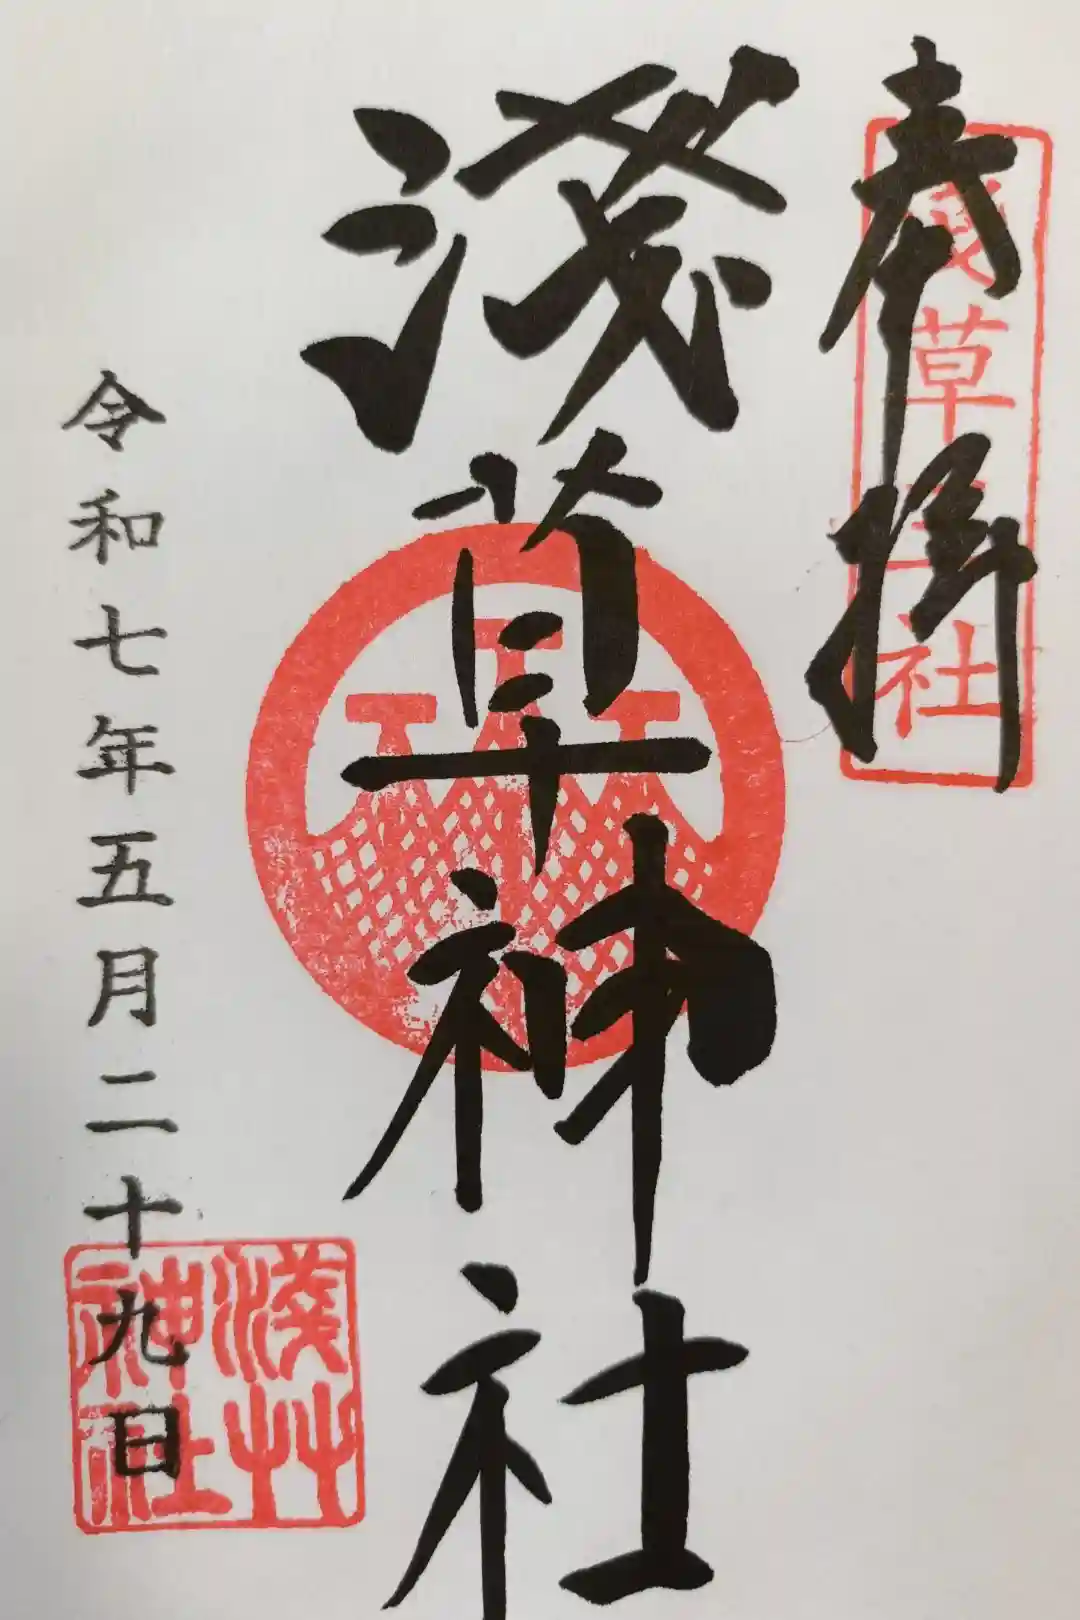 奉拝
淺草三社
淺草神社
令和七年五月二十九日
淺艸
神社